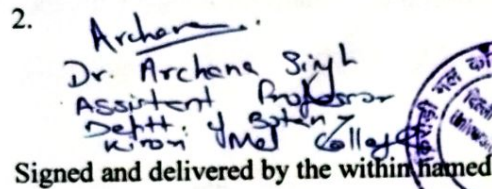 2.
Archana
Dr. Archana Singh
Assistant Professor
Deptt. of Botany
Kirori Mal College
Signed and delivered by the within named